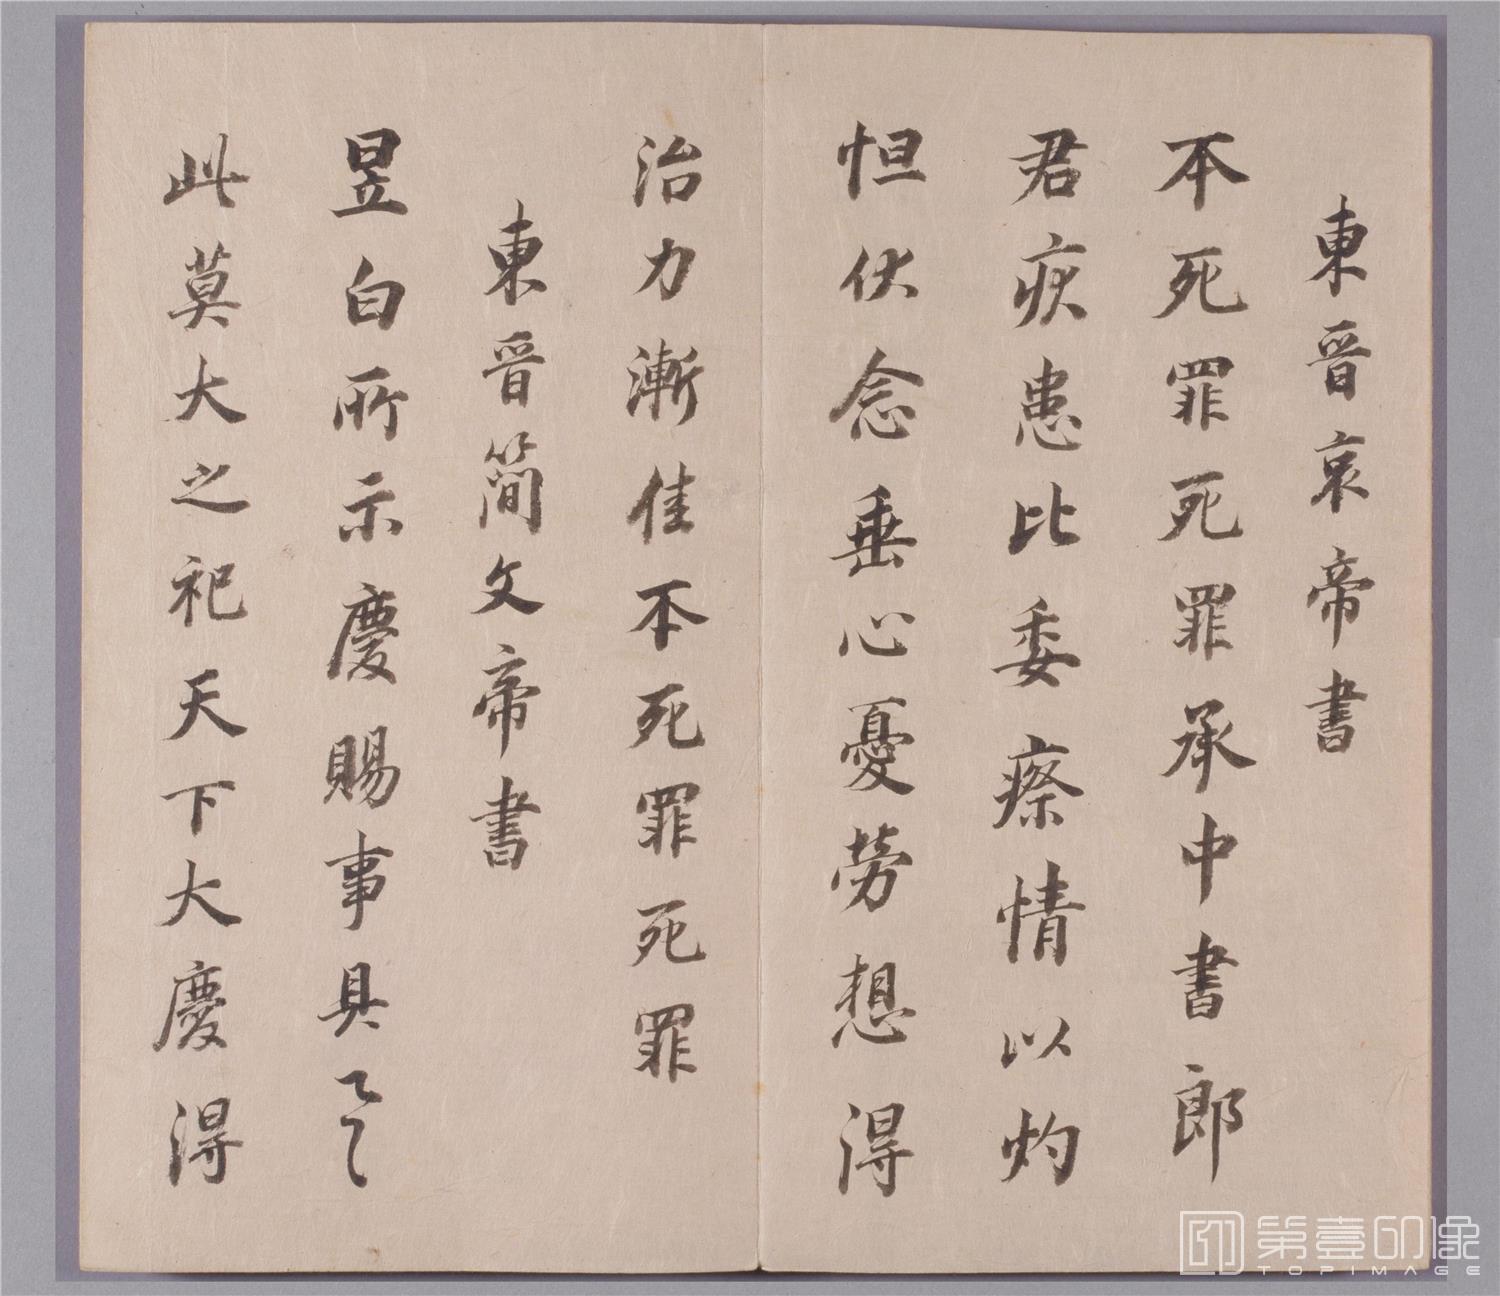 東晉哀帝書
丕死罪死罪承中書郎
君疾患比委瘵情以灼
怛伏念垂心憂勞想得
治力漸佳丕死罪死罪
東晉簡文帝書
昱白所示慶賜事具
此莫大之祀天下大慶得
第壹印像
TOPIMAGE